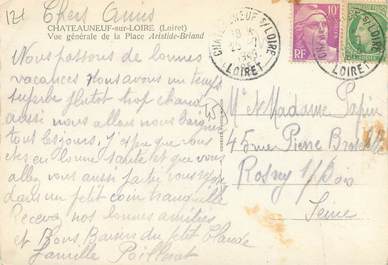 121 Chers Amis
CHATEAUNEUF-sur-LOIRE (Loiret)
Vue générale de la Place Aristide-Briand
CHATEAUNEUF S/LOIRE
LOIRET
10F
RF
Nous passons de bonnes
vacances Nous avons un temps
superbe plutot trop chaud
aussi nous allons nous baigner
tous les jours. J'espère que vous
êtes en bonne santé et que vous
allez vous aussi partir vous
dans un petit coin tranquille
Recevez nos bonnes amitiés
et Bons Baisers du petit Claude
Famille Poillerat
Mr et Madame Papin
45 rue Pierre
Rosny s/Bois
Seine